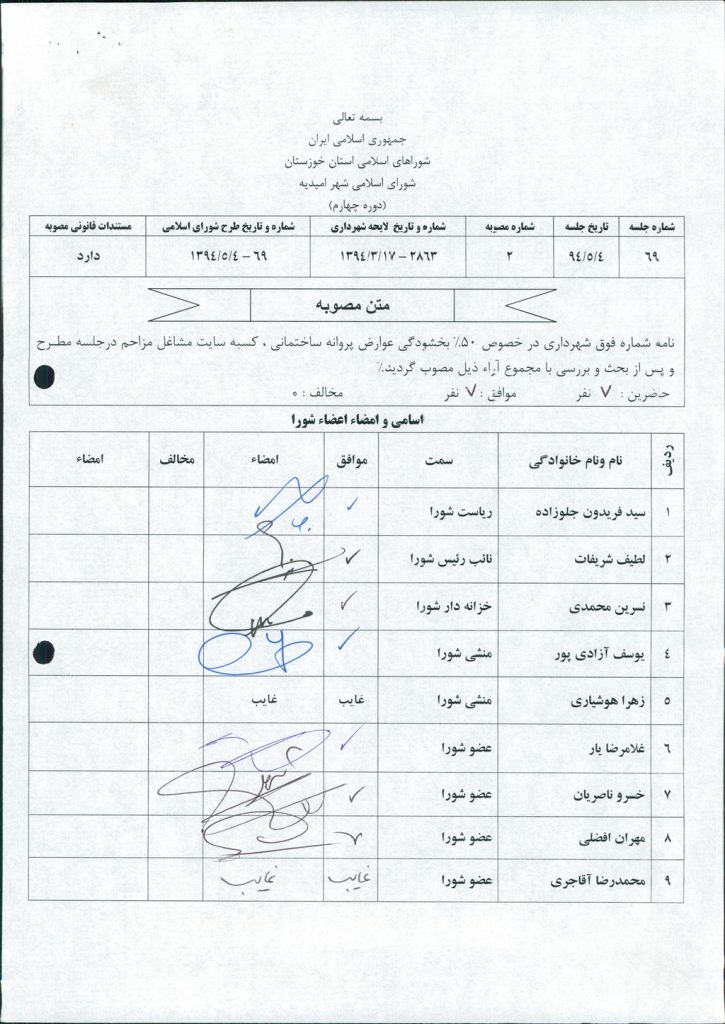 بسمه تعالی
جمهوری اسلامی ایران
شوراهای اسلامی استان خوزستان
شورای اسلامی شهر امیدیه
(دوره چهارم)
شماره جلسه تاریخ جلسه شماره مصوبه شماره و تاریخ لایحه شهرداری شماره و تاریخ طرح شورای اسلامی مستندات قانونی مصوبه
۶۹ ۹٤/۵/٤ ۲ ۲۸۶۳ – ۱۳۹٤/۳/۱۷ ۶۹ – ۱۳۹٤/۵/٤ دارد
متن مصوبه
نامه شماره فوق شهرداری در خصوص ۵۰٪ بخشودگی عوارض پروانه ساختمانی ، کسبه سایت مشاغل مزاحم درجلسه مطرح
و پس از بحث و بررسی با مجموع آراء ذیل مصوب گردید.٪
حاضرین : ۷ نفر موافق : ۷ نفر مخالف : ۰
اسامی و امضاء اعضاء شورا
ردیف نام ونام خانوادگی سمت موافق امضاء مخالف امضاء
۱ سید فریدون جلوزاده ریاست شورا ✓
۲ لطیف شریفات نائب رئیس شورا ✓
۳ نسرین محمدی خزانه دار شورا ✓
٤ یوسف آزادی پور منشی شورا ✓
۵ زهرا هوشیاری منشی شورا غایب غایب
۶ غلامرضا یار عضو شورا ✓
۷ خسرو ناصریان عضو شورا ✓
۸ مهران افضلی عضو شورا ✓
۹ محمدرضا آقاجری عضو شورا غایب غایب